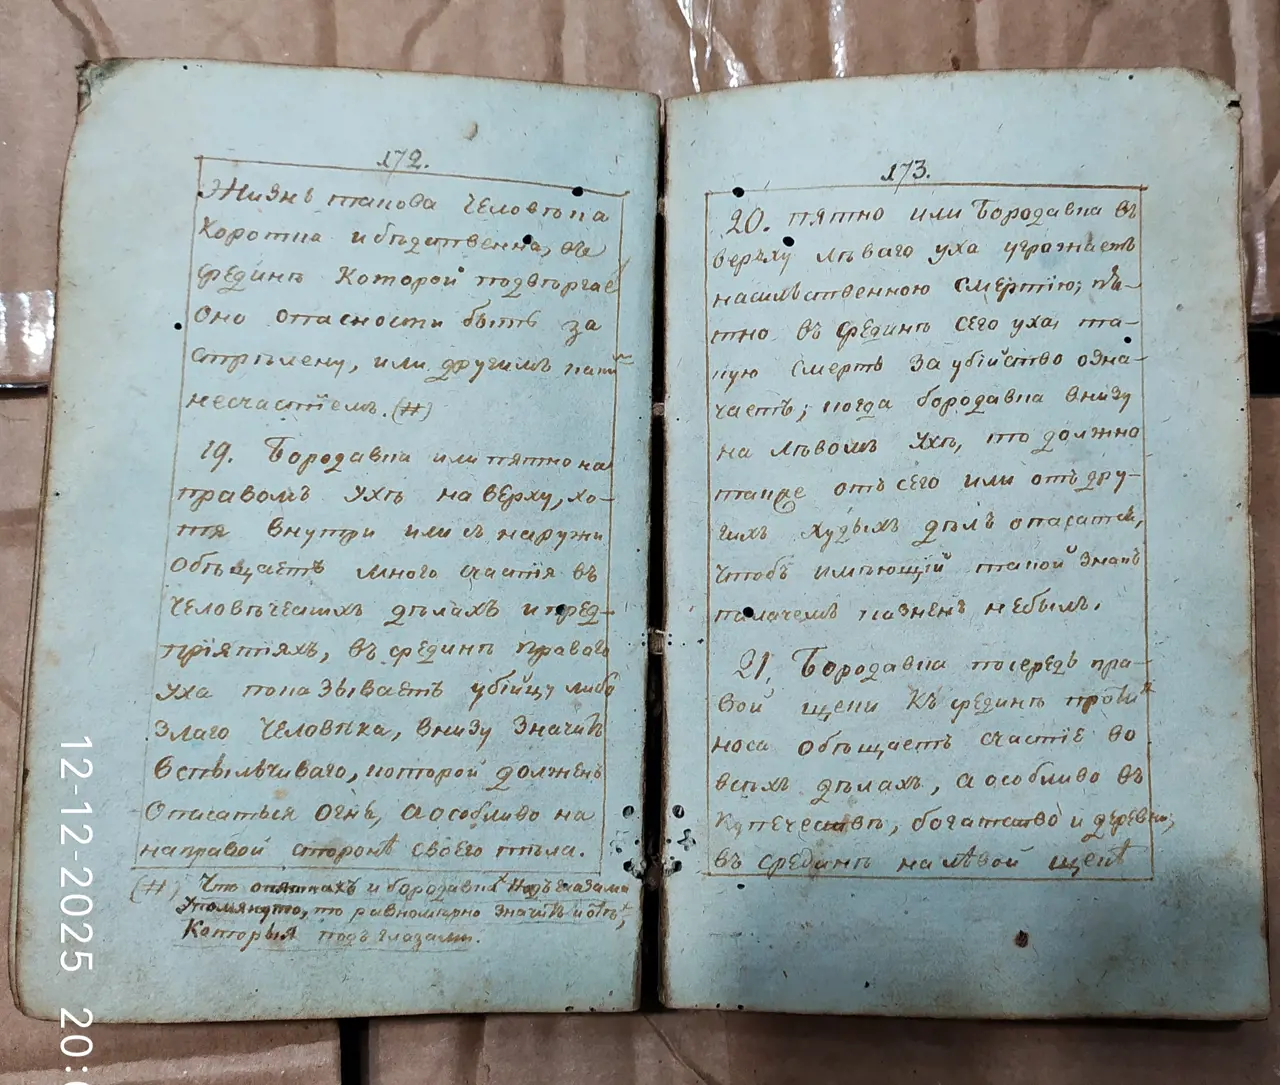 172.
Жизнь такова человѣка
Коротка и бѣдственна, въ
срединѣ Которой подвѣргае
Оно опасности быть за
стрѣлену, или другимъ каки
несчастїемъ. (#)
19. Бородавка или пятно на
правомъ ухѣ на вѣрху, хо-
тя внутри или съ наружи
Обѣщаетъ много счастїя въ
Человѣческихъ дѣлахъ и пред-
прїятїяхъ, въ срединѣ правого
Уха показываетъ убїйцу либо
Злаго Человѣка, внизу Значитъ
Вспыльчиваго, которой долженъ
Опасаться Огня, а особливо на
направой сторонѣ своего тѣла.
(#) Что опятнахъ и бородавкахъ надъ глазами
Упомянуто, то равномѣрно значитъ и отѣхъ,
Которыя подъ глазами.
173.
20. пятно или Бородавка въ
верьху лѣваго уха угрожаетъ
насильственною Смертїю; пя-
тно въ срединѣ сего уха, та-
кую Смерть За убїйство озна-
чаетъ; когда бородавка внизу
на лѣвомъ ухѣ, то должно
также отъ сего или отъ дру-
гихъ худыхъ дѣлъ опасатся,
Чтобъ имѣющїй такой Знакъ
палачемъ казненъ небылъ.
21. Бородавка посередь пра-
вой щеки Къ срединѣ проти
носа обѣщаетъ счастїе во
всѣхъ дѣлахъ, а особливо въ
Купечествѣ, богатство и деревни;
въ срединѣ на лѣвой щекѣ
12-12-2025 20: